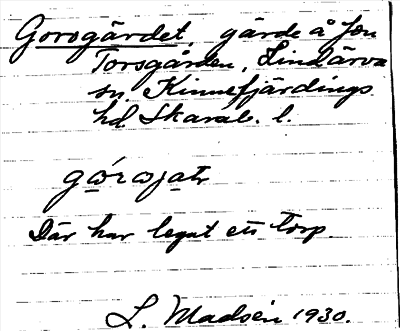 Gorsgärdet, gärde å fsn
Torsgården, Lindärva
sn, Kinnefjärdings
hd Skarab. l.
Där har legat ett torp.
L. Madsén 1930.